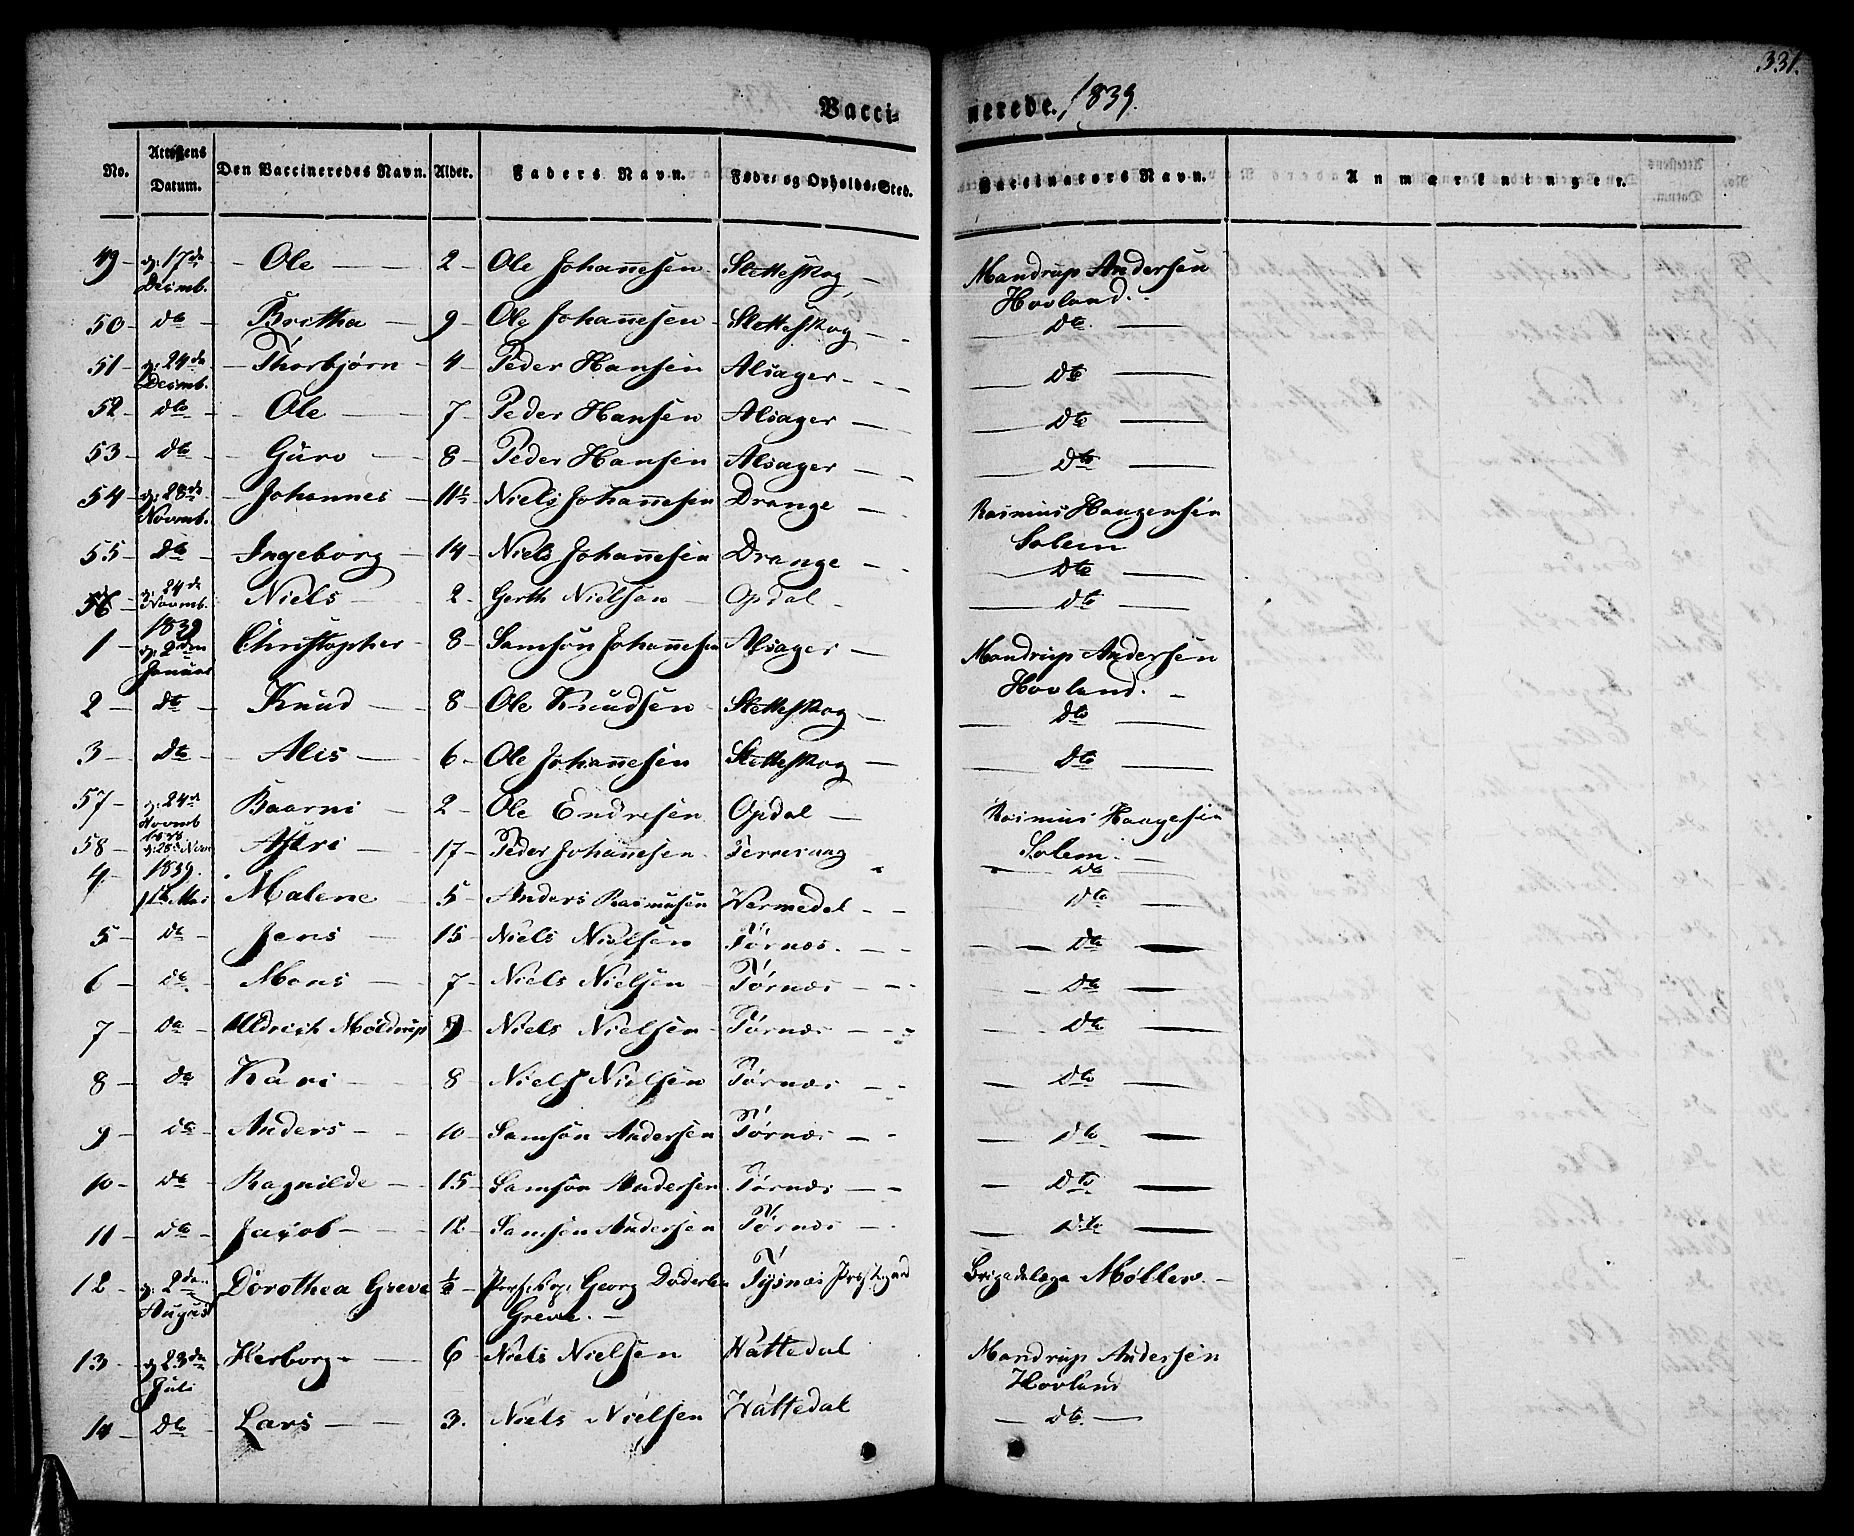 331.
Vaccinerede. 1839.
No. Attestens Datum. Den Vaccineredes Navn. Alder. Faders Navn. Føde- og Opholds-Sted. Vaccinators Navn. Anmærkninger.
49 - d: 17de Decmb. - Ole - 2 - Ole Johannesen Sletteskog - Mandrup Andersen Hovland.
50 - dto - Britha - 9 - Ole Johannesen - Sletteskog - - Dto -
51 - d: 24de Decmb. - Thorbjørn - 4 - Peder Hansen Alsager - - Dto -
52 - dto - Ole - 7 - Peder Hansen Alsager - - Dto -
53 - dto - Guro - 8 - Peder Hansen - Alsager - - Dto -
54 - d: 28de Novmb. - Johannes - 11½ - Niels Johannesen Drange - Rasmus Haugesen Solem
55 - Dto - Ingeborg - 14 - Niels Johannesen Drange - - Dto -
56 - d: 24de Novmb. - Niels - 2 - Gerth Nielsen - Opdal - - Dto -
1 - 1839 d: 2den Januar - Christopher - 8 - Samson Johannesen Alsager - Mandrup Andersen Hovland. -
2 - Dto - Knud - 8 - Ole Knudsen - Sletteskog - - Dto -
3 - Dto - Alis - 6 - Ole Johannesen Sletteskog - - Dto -
57 - d: 24de Novmb 1838 Baarni - 2 - Ole Endresen Opdal - Rasmus Haagesen Solem. -
58 - d: 28de Novm Astri - 17 - Peder Johannesen - - Dto
4 - 1839. 1ste Mai Malene - 5 - Anders Rasmusen Vermedal - - - Dto -
5 - Do - Jens - 15 - Niels Nielsen Tørnæs. - - - Dto -
6 - do - Mons - 7 - Niels Nielsen - Tørnæs - - - Dto -
7 - Do - Uldrich Møldrup 9 - Niels Nielsen - Tørnæs - - - Dto -
8 - Do - Kari - 8 - Niels Nielsen Tørnæs - - - Dto -
9 - Do - Anders - 10 - Samson Andersen Tørnæs - - - Dto -
10 - Do - Ragnilde - 15 - Samson Andersen Tørnæs - - - Dto -
11 - Do - Jacob - 12 - Samson Andersen Tørnæs - - - Dto -
12 - d: 2den August Dorothea Greve ½ - Georg Døderlein Greve. - Tysnæs Præstegaard Brigadelæge Møller. -
13 - d: 23de Juli - Herborg - 6 - Niels Nielsen Hattedal Mandrup Andersen Hovland
14 - Dto - Lars - 3. Niels Nielsen Hattedal - dto. -